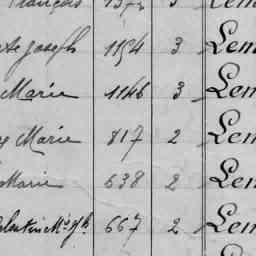 François 3 Lem
Joseph 1154 3 Lem
Marie 1146 3 Lem
Marie 817 2 Lem
Marie 638 2 Lem
667 2 Lem